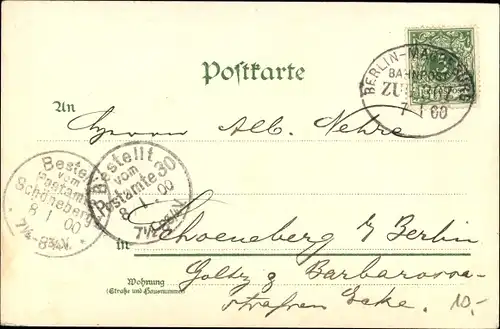 Postkarte
BERLIN-MAGDEBURG
BAHNPOST
ZUG
7 1 00
An
Herrn Alb. Nehre
Bestellt
vom
Postamte 30
8 1 00
7½-8¾V.
Bestellt
vom
Postamte
Schöneberg
8 1 00
7½-8¾V.
in Schoeneberg b/ Berlin
Wohnung
(Straße und Hausnummer)
Goltz & Barbarossa-
straßen Ecke. 10.-